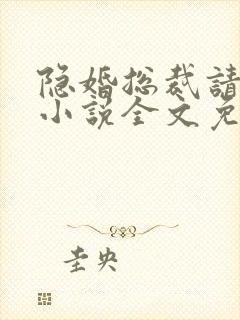 隐婚总裁請
小説全文免
圭央